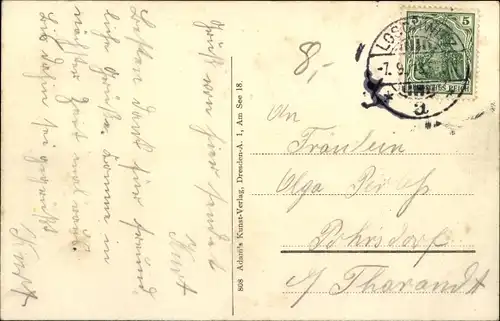 Gruß von hier sendet
Kurt
Besten Dank für freund-
liche Grüße. Komme in
nächster Zeit mal vorbei.
Bis dahin sei gegrüßt
Kurt
808 Adam's Kunst-Verlag, Dresden-A. 1, Am See 18.
8,-
5
LOSCHWITZ
-7.9.
a
DEUTSCHES REICH
An
Fräulein
Olga
Pohrsdorf
b/ Tharandt